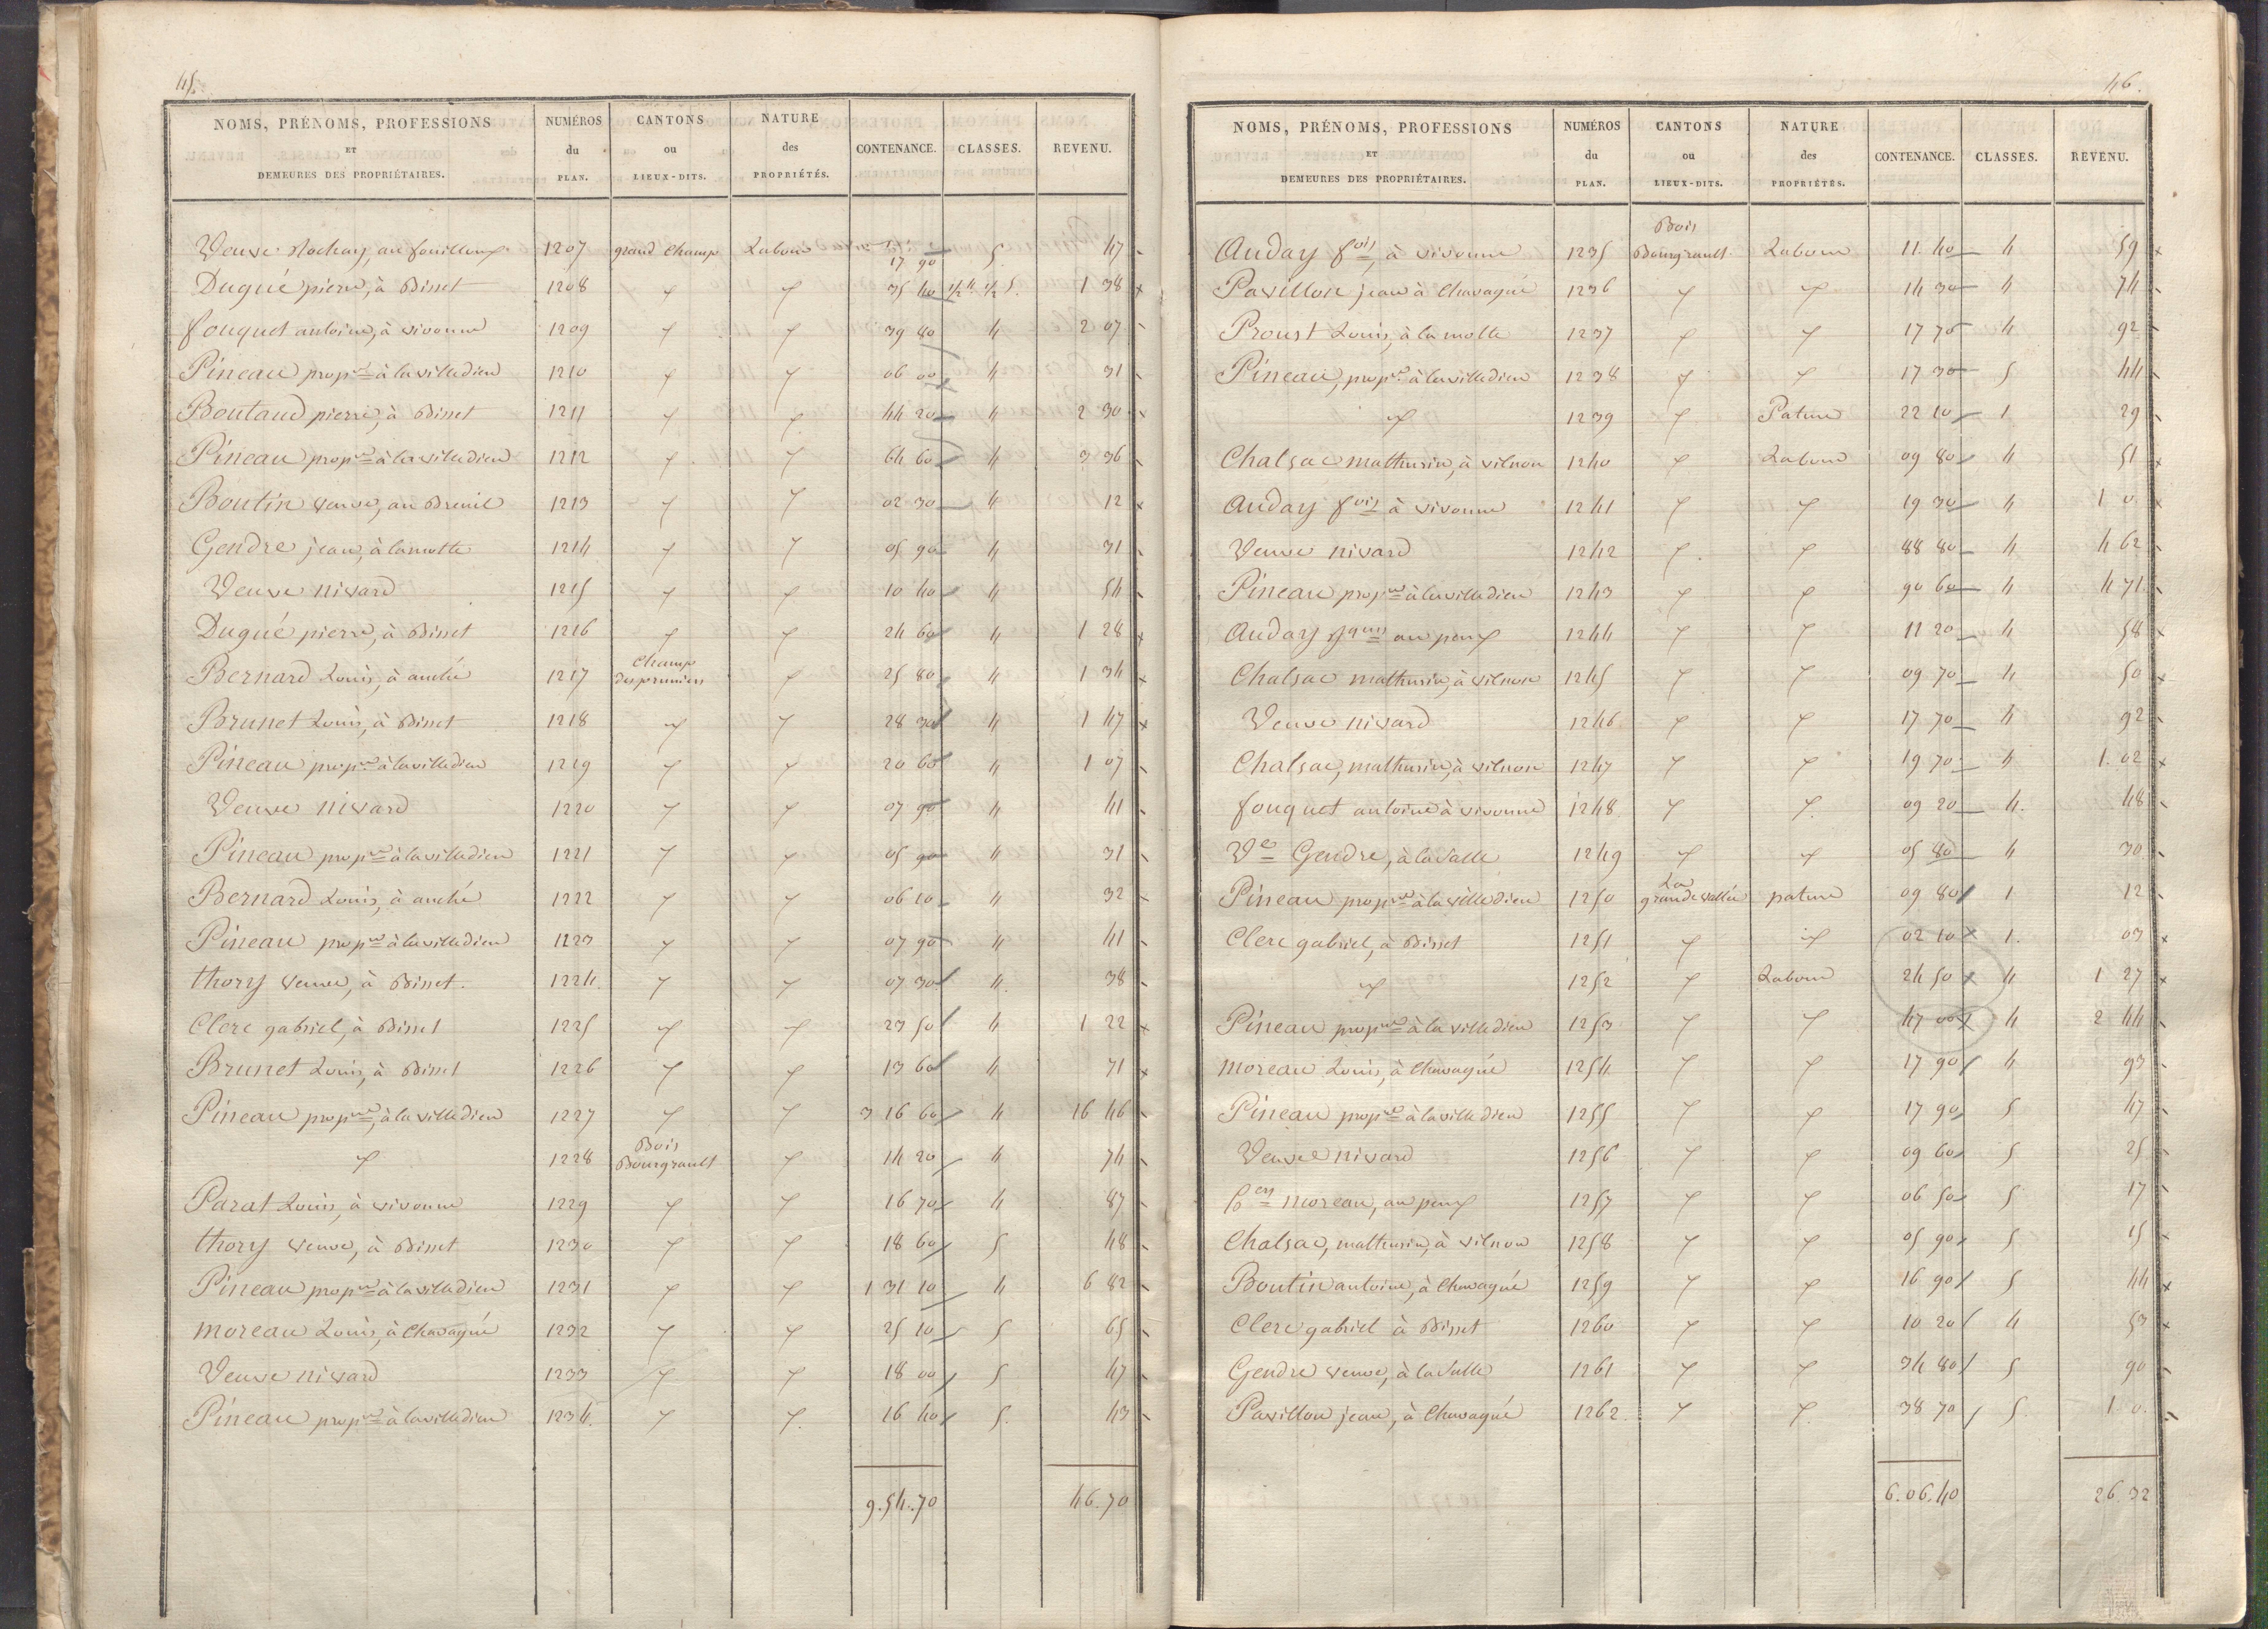 45.
NOMS, PRÉNOMS, PROFESSIONS ET DEMEURES DES PROPRIÉTAIRES. | NUMÉROS du PLAN. | CANTONS ou LIEUX-DITS. | NATURE des PROPRIÉTÉS. | CONTENANCE. | CLASSES. | REVENU.
Veuve au fouilloux 1207 grand Champ Labour 17 90 5 47
Dugué pierre, à Bisset 1208 〃 〃 35 40 1/2 4. 1/2 5. 1 38
fouquet antoine, à vivonne 1209 〃 〃 39 80 4 2 07
Pineau propre à la villedieu 1210 〃 〃 06 00 4 31
Boutaud pierre, à Bisset 1211 〃 〃 44 20 4 2 30
Pineau propre à la villedieu 1212 〃 〃 64 60 4 3 36
Boutin veuve, au Breuil 1213 〃 〃 02 30 4 12
Gendre jean, à lamotte 1214 〃 〃 05 90 4 31
Veuve nivard 1215 〃 〃 10 40 4 54
Dugué pierre, à Bisset 1216 〃 〃 24 60 4 1 28
Bernard Louis, à anché 1217 Champ des pruniers 〃 25 80 4 1 34
Brunet Louis, à Bisset 1218 〃 〃 28 30 4 1 47
Pineau propre à la villedieu 1219 〃 〃 20 60 4 1 07
Veuve nivard 1220 〃 〃 07 90 4 41
Pineau propre à la villedieu 1221 〃 〃 05 90 4 31
Bernard Louis, à anché 1222 〃 〃 06 10 4 32
Pineau propre à la villedieu 1223 〃 〃 07 90 4 41
thory veuve, à Bisset. 1224 〃 〃 07 30 4. 38
Clerc gabriel, à Bisset 1225 〃 〃 23 50 4 1 22
Brunet Louis, à Bisset 1226 〃 〃 13 60 4 71
Pineau propre, à la villedieu 1227 〃 〃 3 16 60 4 16 46
〃 1228 Bois Bourgrault 〃 14 20 4 74
Parat Louis, à vivonne 1229 〃 〃 16 70 4 87
thory veuve, à Bisset 1230 〃 〃 18 60 5 48
Pineau propre à la villedieu 1231 〃 〃 1 31 10 4 6 82
moreau Louis, à Chavagné 1232 〃 〃 25 10 5 65
Veuve nivard 1233 〃 〃 18 00 5 47
Pineau propre à la villedieu 1234. 〃 〃 16 40 5. 43
9.54.70 46.70
46.
NOMS, PRÉNOMS, PROFESSIONS ET DEMEURES DES PROPRIÉTAIRES. | NUMÉROS du PLAN. | CANTONS ou LIEUX-DITS. | NATURE des PROPRIÉTÉS. | CONTENANCE. | CLASSES. | REVENU.
Auday fois, à vivonne 1235 Bois Bourgrault Labour 11. 40 4 59
Pavillon jean à Chavagné 1236 〃 〃 14 30 4 74
Proust Louis, à la motte 1237 〃 〃 17 70 4 92
Pineau, propre à la villedieu 1238 〃 〃 17 30 5 44
〃 1239 〃 Pature 22 10 1 29
Chalsac mathurin, à vilnon 1240 〃 Labour 09 80 4 51
Auday fois à vivonne 1241 〃 〃 19 30 4 1 0.
Veuve nivard 1242 〃 〃 88 80 4 4 62
Pineau propre à la villedieu 1243 〃 〃 90 60 4 4 71
Auday au peux 1244 〃 〃 11 20 4 58
Chalsac mathurin, à vilnon 1245 〃 〃 09 70 4 50
Veuve nivard 1246 〃 〃 17 70 4 92
Chalsac, mathurin, à vilnon 1247 〃 〃 19 70 4 1. 02
fouquet antoine à vivonne 1248 〃 〃 09 20 4. 48
Ve Gendre, à la Salle 1249 〃 〃 05 80 4 30
Pineau propre à la villedieu 1250 La grande vallée pature 09 80 1 12
Clerc gabriel, à Bisset 1251 〃 〃 02 10 1. 03
〃 1252 〃 Labour 24 50 4 1 27
Pineau propre à la villedieu 1253 〃 〃 47 00 4 2 44
moreau Louis, à Chavagné 1254 〃 〃 17 90 4 93
Pineau propre à la villedieu 1255 〃 〃 17 90 5 47
Veuve nivard 1256 〃 〃 09 60 5 25
moreau, au peux 1257 〃 〃 06 50 5 17
Chalsac, mathurin, à vilnon 1258 〃 〃 05 90 5 15
Boutin antoine, à Chavagné 1259 〃 〃 16 90 5 44
Clerc gabriel à Bisset 1260 〃 〃 10 20 4 53
Gendre veuve, à la Salle 1261 〃 〃 34 80 5 90
Pavillon jean, à Chavagné 1262. 〃 〃 38 70 5. 1. 0.
6.06.40 26 32